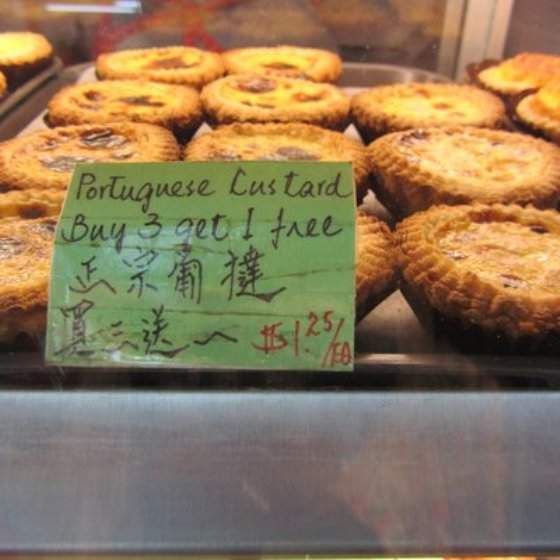 Portuguese Custard
Buy 3 get 1 free
正宗葡撻
買三送一 $1.25/EA